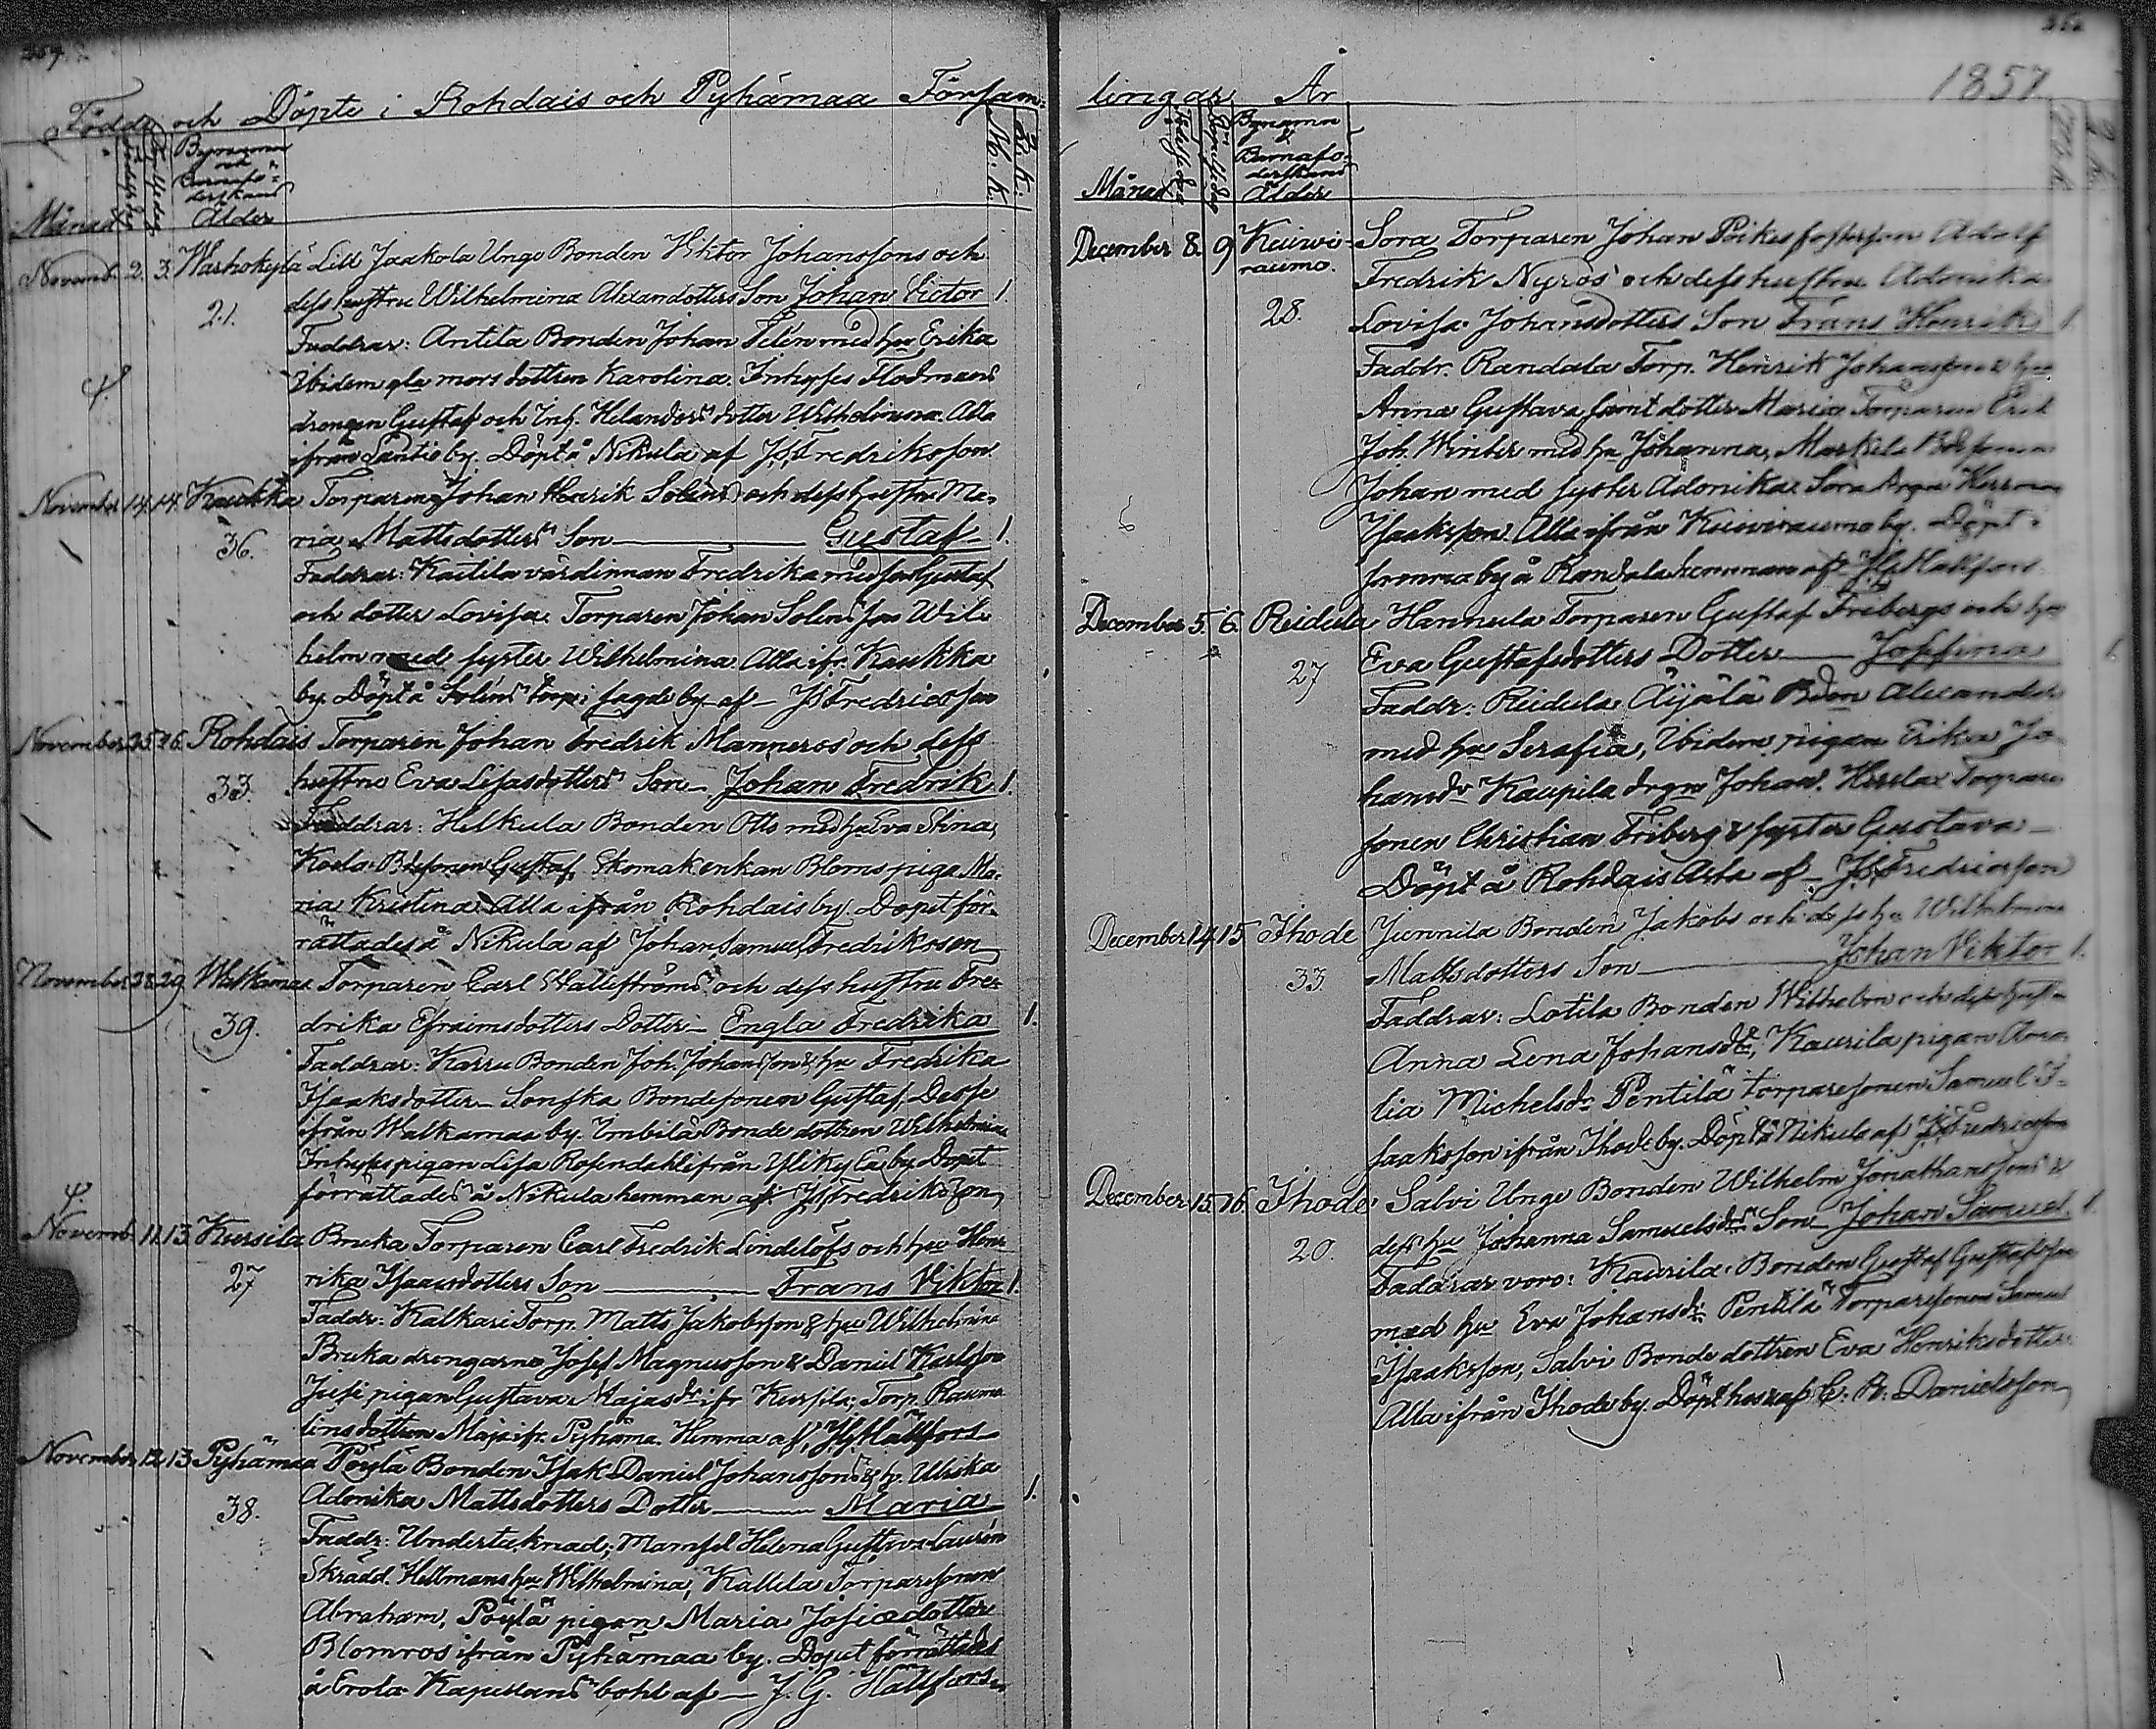 Födde och Döpte i Rohdais och Pyhämaa Försam=
Månad
Bynamn
och
Barnafö=
derskans
Ålder
M. k.
Q. k.
Novemb. 2. 3. Warhokylä Lill Jaakola Unge Bonden Viktor Johanssons och
21. dess hustru Wilhelmina Alexandotters Son Johan Victor 1.
Faddrar: Antila Bonden Johan Felén med hu Erika
Ibidem gla mors dottren Karolina. Inhyses Flodmans
drengen Gustaf och Inh. Helanders dotter Wilhelmina. Alla
ifrån Santio by. Döpt å Nikula af J.S. Fredriksson
November 14. 14. Kaukka Torparen Johan Henrik Soléns och dess hustru Ma=
36. ria Mattsdotters Son Gustaf 1.
Faddrar: Kaitila värdinnan Fredrika med son Gustaf
och dotter Lovisa Torparen Johan Soléns son Wil=
helm med syster Wilhelmina Alla ifr. Kaukka
by. Döpt å Soléns torp i sagde by af J.S. Fredricsson
November 25. 26. Rohdais Torparen Johan Fredrik Manneros och dess
33. hustru Eva Lisasdotters Son Johan Fredrik 1.
Faddrar: Helkula Bonden Otto med hu Eva Stina,
Bdesonen Gustaf, Skomakenkan Bloms piga Ma=
ria Kristina Alla ifrån Rohdais by. Dopet för=
rättades å Nikula af Johan Samuel Fredriksson
November 28. 29. Walkamaa Torparen Carl Hallströms och dess hustru Fre=
39. drika Efraimsdotters Dotter Engla Fredrika 1.
Faddrar: Karru Bonden Joh. Johansson & hu Fredrika
Isaaksdotter Bondesonen Gustaf Desse
ifrån Walkamaa by. Imbilä Bonde dottren Wilhelmina
Inhyses pigan Lisa Rosendahl ifrån Ylikylä by Dopet
förrättades å Nikula hemman af J.S. Fredriksson
Novemb. 11. 13. Kursila Bruka Torparen Carl Fredrik Lindelöfs och hu Hen=
27 rika Isaacsdotters Son Frans Viktor 1.
Faddr: Kalkari Torp. Matts Jakobsson & hu Wilhelmina
Bruka drengarne Josef Magnusson & Daniel Karlsson
pigan Gustava Majasdr ifr Kursila; Torp.
dottren Maja ifr. Pyhäma. Hemma af J.G. Hällfors
November 12. 13. Pyhämaa Pöylä Bonden Isak Daniel Johanssons & h. Ulrika
38. Adonika Mattsdotters Dotter Maria 1.
Faddr: Undertecknad; Mamsel Helena Gustava Laurén
Skrädd. Hellmans hu Wilhelmina, Kallela Torparesonen
Abraham, Pöylä pigan Maria Josiædotter
Blomros ifrån Pyhämaa by. Dopet förrättades
å Erola Kapellans bohl af J. G. Hällfors
lingar År 1857
Månad
Bynamn
&
Barnafö=
derskans
Ålder
December 8. 9 Kuivi= Sora Torparen Johan Poikes fosterson Adolf
raumo. Fredrik Nyros och dess hustru Adonika
28. Lovisa Johansdotters Son Frans Henrik 1.
Faddr. Randala Torp. Henrik Johansson & hu
Anna Gustava samt dotter Maria Torparen Erik
Joh. Winter med hu Johanna, Markela Bdesonen
Johan med syster Adonika Sora Herman
Isaaksson Alla ifrån Kuiviraumo by. Döpt i
samma by å Randala hemman af J.G. Hällfors
December 5. 6. Reidula Hannula Torparen Gustaf Fribergs och hu
27 Eva Gustafsdotters Dotter Josefina 1
Faddr: Reidula Äijälä Bden Alexander
med hu Serafia, Ibidem pigan Erika Jo=
hansdr Kaupila drgn Johan. Torpare
sonen Christian Friberg & syster Gustava
Döpt å Rohdais af J.S. Fredricsson
December 14. 15. Ihode Junnila Bonden Jakobs och dess hu Wilhelmina
33 Mattsdotters Son Johan Viktor 1.
Faddrar: Lotila Bonden Wilhelm och dess hust=
Anna Lena Johansdtr, Kaurila pigan Ama=
lia Michelsdr Pentilä torparesonen Samuel I=
saaksson ifrån Ihode by. Döpt å Nikula af J.S. Fredricsson
December 15. 16. Ihode Salvi Unge Bonden Wilhelm Jonathanssons &
20. dess hu Johanna Samuelsdrs Son Johan Samuel. 1.
Faddrar voro: Kaurila Bonden Gustaf Gustafsson
med hu Eva Johansdr Pentilä Torparesonen Samuel
Isaaksson, Salvi Bonde dottren Eva Henriksdotter
Alla ifrån Ihode by. Döpt hos af C. R. Danielsson